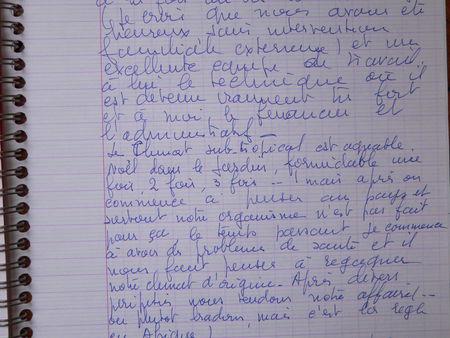 Je crois que nous avons été
heureux sans intervention
familiale extérieure) et une
excellente équipe de travail
à lui le technique où il
est devenu vraiment très fort
et à moi le financier et
l'administratif _
Le Climat subtropical est agréable.
Noël dans le jardin, formidable une
fois, 2 fois, 3 fois -- ! mais après on
commence à penser au pays et
surtout notre organisme n'est pas fait
pour ça le temps passant Je commence
à avoir des problèmes de santé et il
nous faut penser à regagner
notre climat d'origine. Après divers
péripéties nous vendons notre affaire! --
ou plutôt bradons, mais c'est la règle
en Afrique!